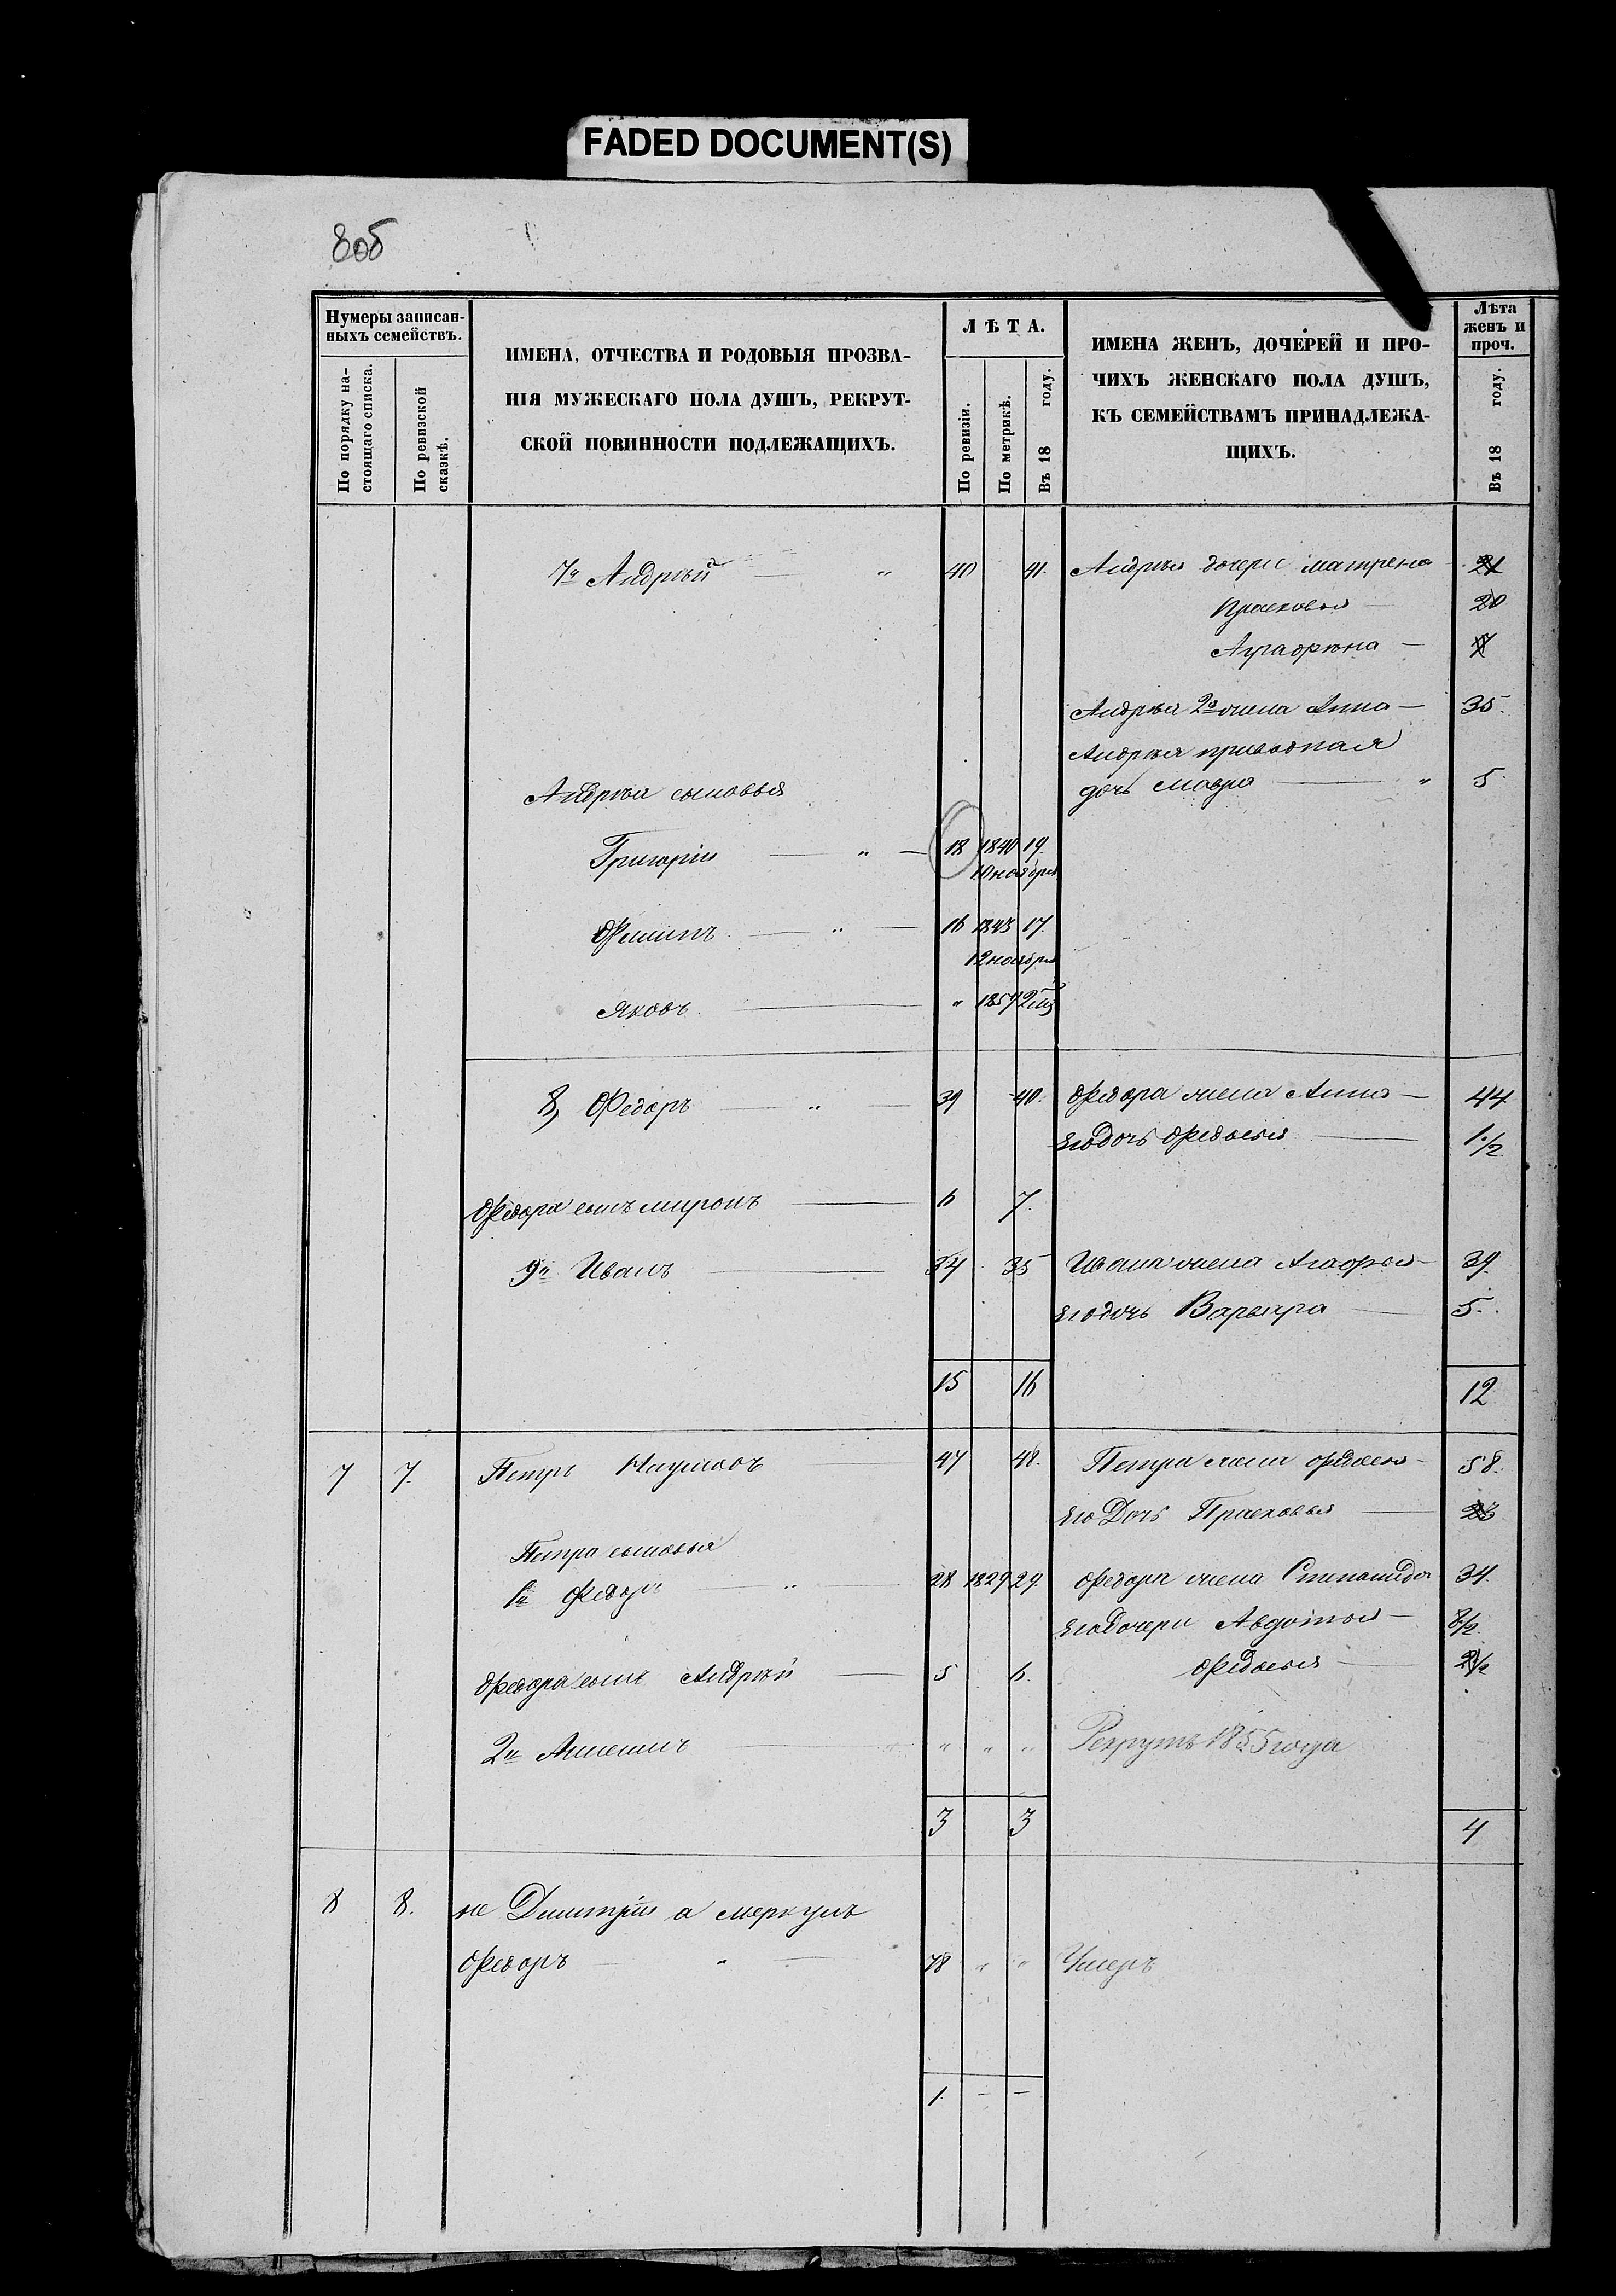 FADED DOCUMENT(S)
8об
Нумеры записан-
ныхъ семействъ.
По порядку на-
стоящаго списка.
По ревизской
сказкѣ.
ИМЕНА, ОТЧЕСТВА И РОДОВЫЯ ПРОЗВА-
НІЯ МУЖЕСКАГО ПОЛА ДУШЪ, РЕКРУТ-
СКОЙ ПОВИННОСТИ ПОДЛЕЖАЩИХЪ.
ЛѢТА.
По ревизіи.
По метрикѣ.
Въ 18 году.
ИМЕНА ЖЕНЪ, ДОЧЕРЕЙ И ПРО-
ЧИХЪ ЖЕНСКАГО ПОЛА ДУШЪ,
КЪ СЕМЕЙСТВАМЪ ПРИНАДЛЕЖА-
ЩИХЪ.
Лѣта
женъ и
проч.
Въ 18 году.
7й Андрѣй — " 40 41. Андрея дочери Матрена 21
Прасковья — 20
Аграфена — 7
Андрея 2я жена Анна — 35.
Андрея приводная
Андрея сыновья дочь Мавра — " 5.
Григорій — " — 18 1840 19.
10 ноября
Филипъ — " — 16 1843 17.
12 ноября
Яковъ — " 1857 2
8, Федоръ — " — 39 40. Федора жена Анна — 44
его дочь Федосья — 1 1/2
Федора сынъ Миронъ — 6 7.
9й Иванъ — 34 35 Ивана жена Агафья — 39.
его дочь Варвара — 5.
15 16 12
7 7. Петръ Наумовъ 47 48. Петра жена Федосья — 58.
его Дочь Прасковья — 23
Петра сыновья
1й Федоръ " 28 1829 29. Федора жена Степанида 34.
его дочери Авдотья — 8/2
Федора сынъ Андрѣй — 5 6. Федосья — 2 1/2
2й — " " " Рекрутъ 1855 года
3 3 4
8 8. не Дмитрій а Меркулъ
Федоръ — " — 78 " " Умеръ
1. — —